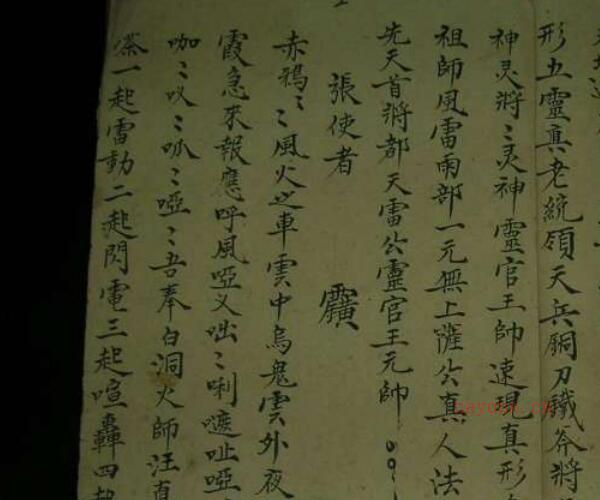 形五靈真老統領天兵銅刀鐵斧將
神灵將〻灵神靈官王帥速現真形
祖師風雷雨部一元無上薩公真人法
先天首將都天雷公靈官王元帥
張使者
赤鴉〻〻風火之車雲中烏鬼雲外夜
霞急來報應呼風啞义咄〻唎嗻吡啞
咖〻㕛〻呱〻啞〻吾奉白洞火師汪真
嗏一起雷動二起閃電三起喧轟四起